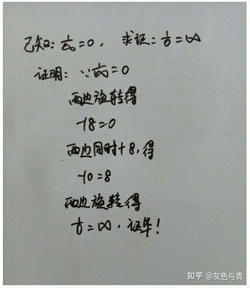 已知：1/∞=0，求证：1/0=∞
证明：∵1/∞=0
两边旋转得
-18=0
两边同时+8，得
-10=8
两边旋转得
1/0=∞，证毕！
知乎 @灰色与青